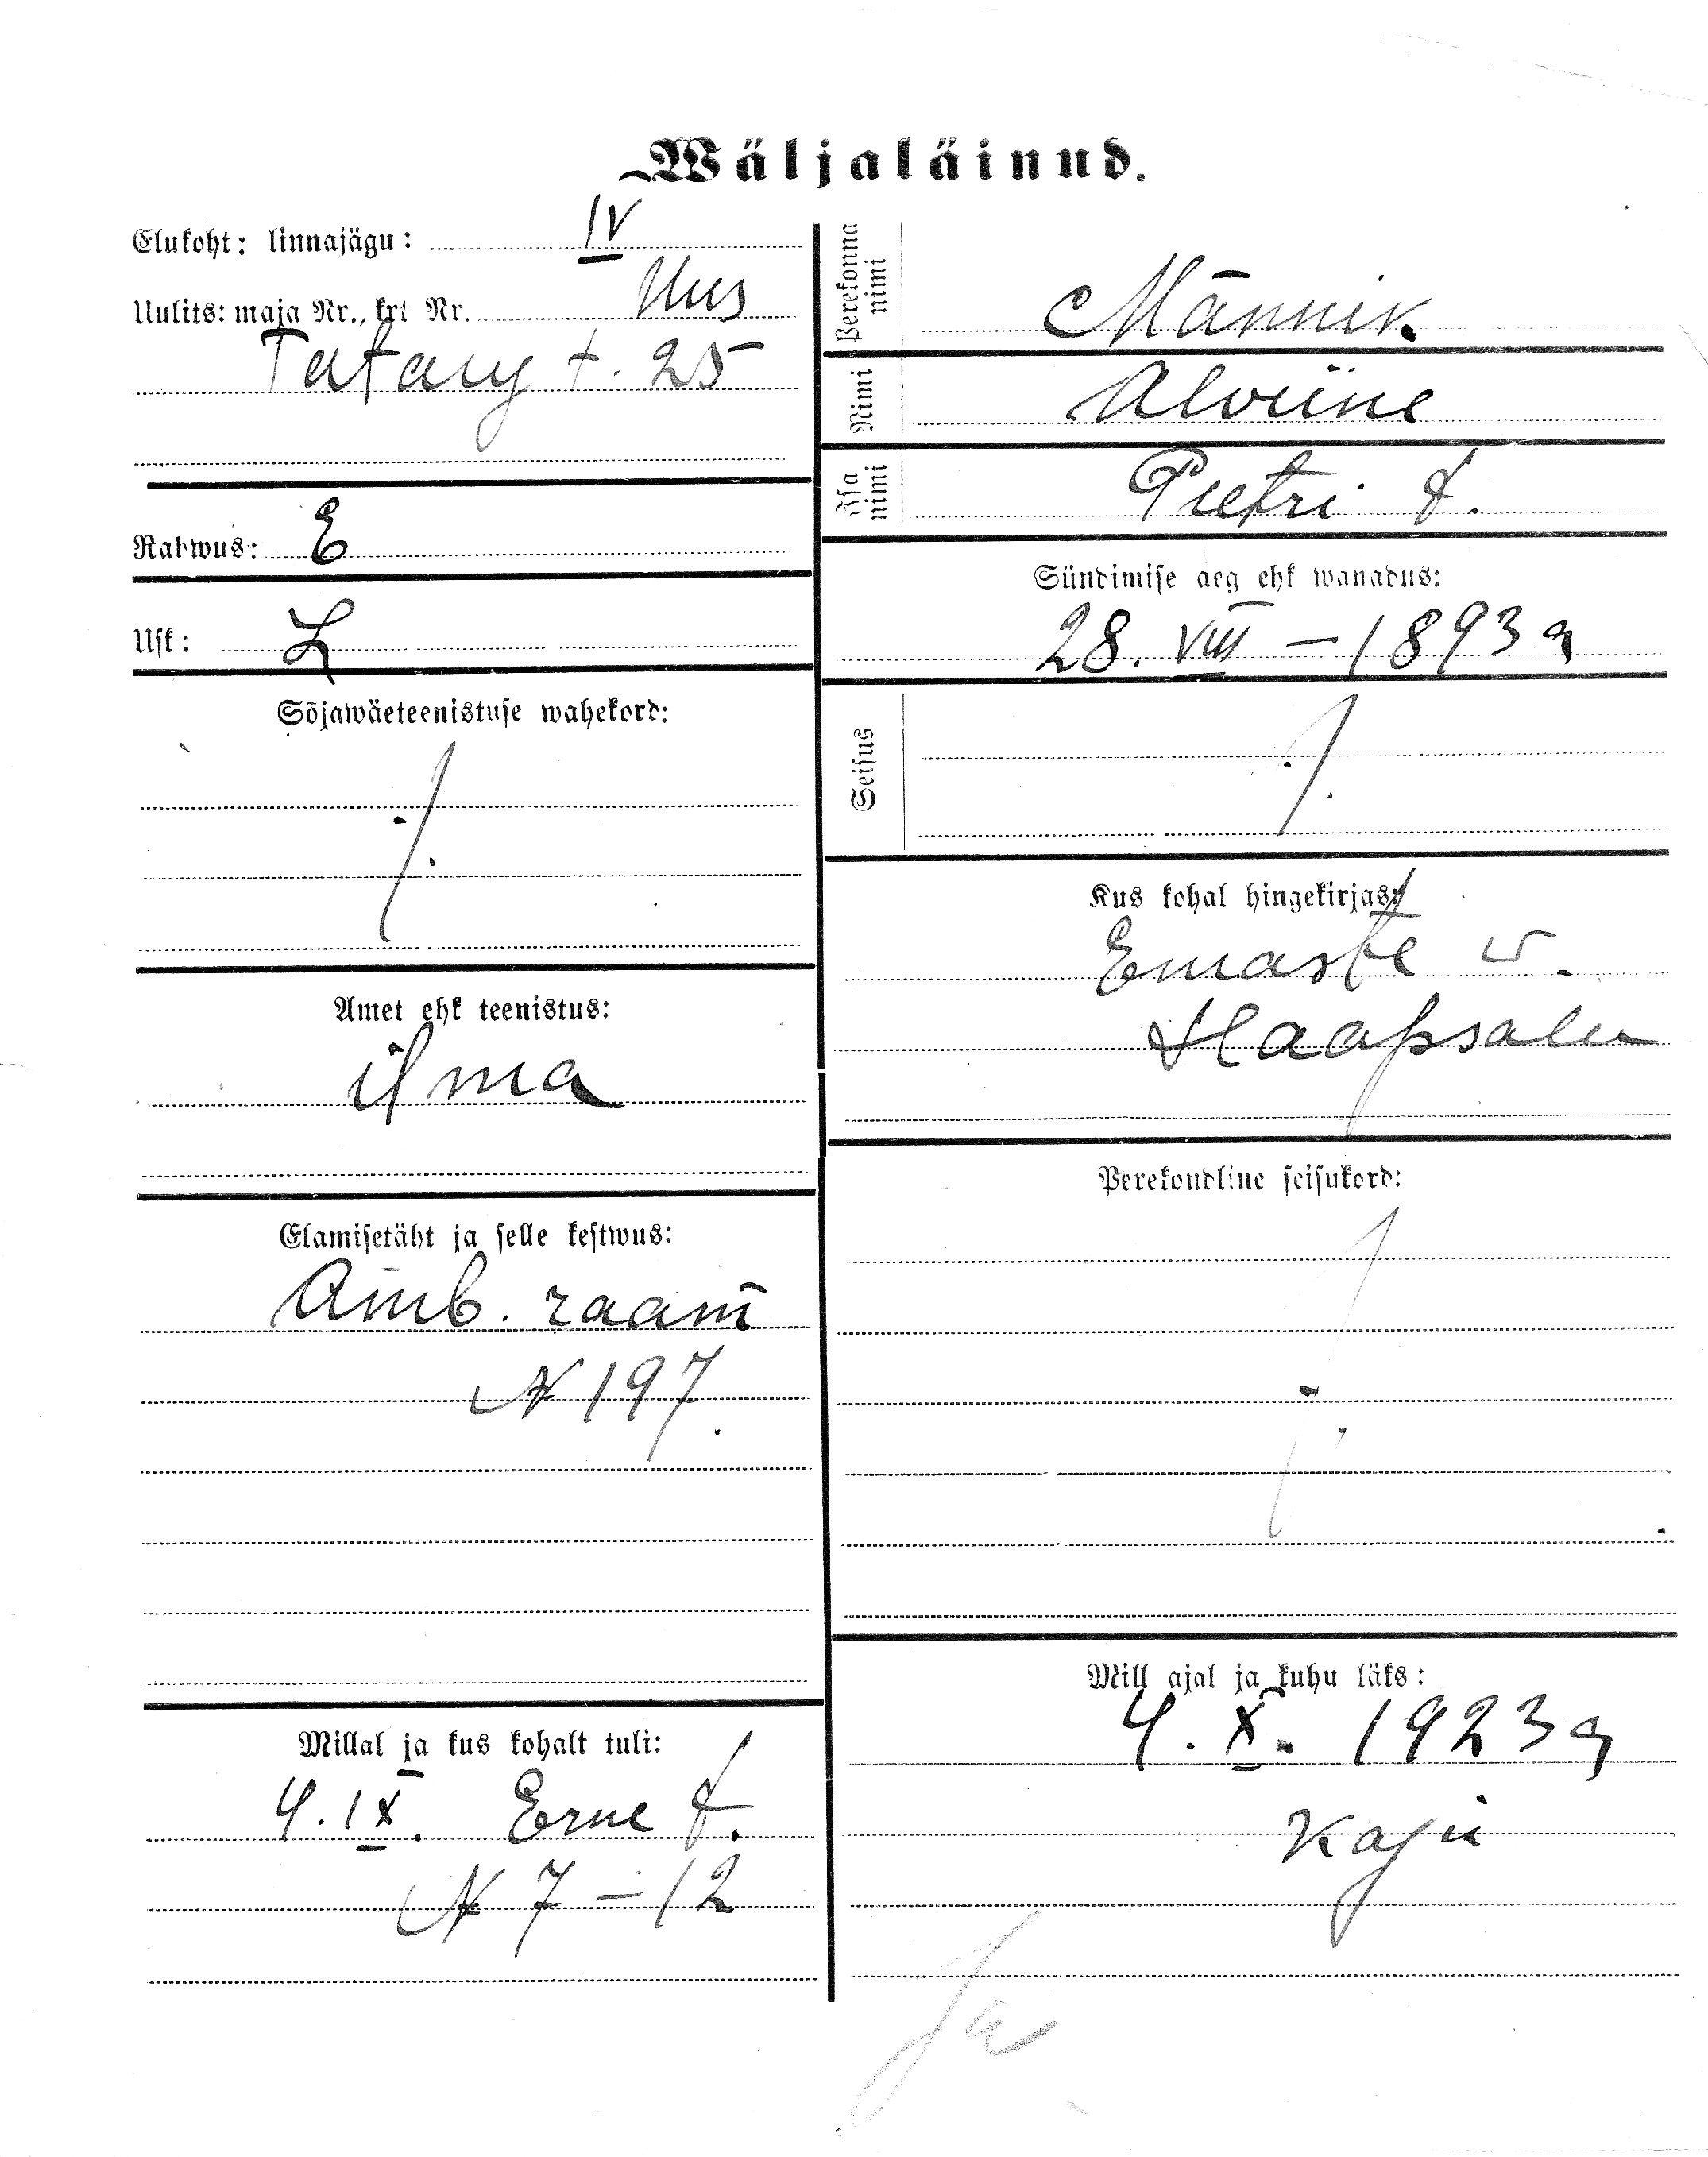 Wäljaläinud.
Elukoht: linnajägu: IV
Uulits: maja Nr., krt Nr. Uus
Tatary t. 25
Rahwus: E
Usk: L
Sõjawäeteenistuse wahekord:
Amet ehk teenistus:
ilma
Elamisetäht ja selle kestwus:
Amb. raam
N 197.
Millal ja kus kohalt tuli:
4. IX. Erne t.
N 7 – 12
Perekonna nimi Männik.
Nimi Alviine
Isa nimi Peetri t.
Sündimise aeg ehk wanadus:
28. VIII – 1893 a
Seisus
Kus kohal hingekirjas:
Emaste w.
Haapsalu
Perekondline seisukord:
Mill ajal ja kuhu läks:
4. X. 1923 a